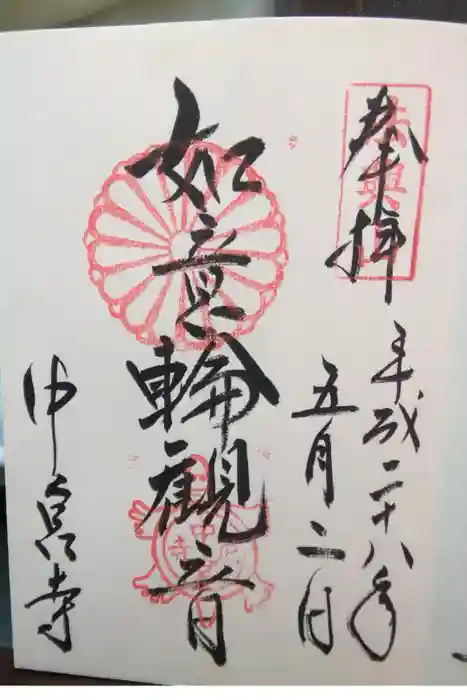 奉拝
平成二十八年
五月二日
如意輪観音
中宮寺